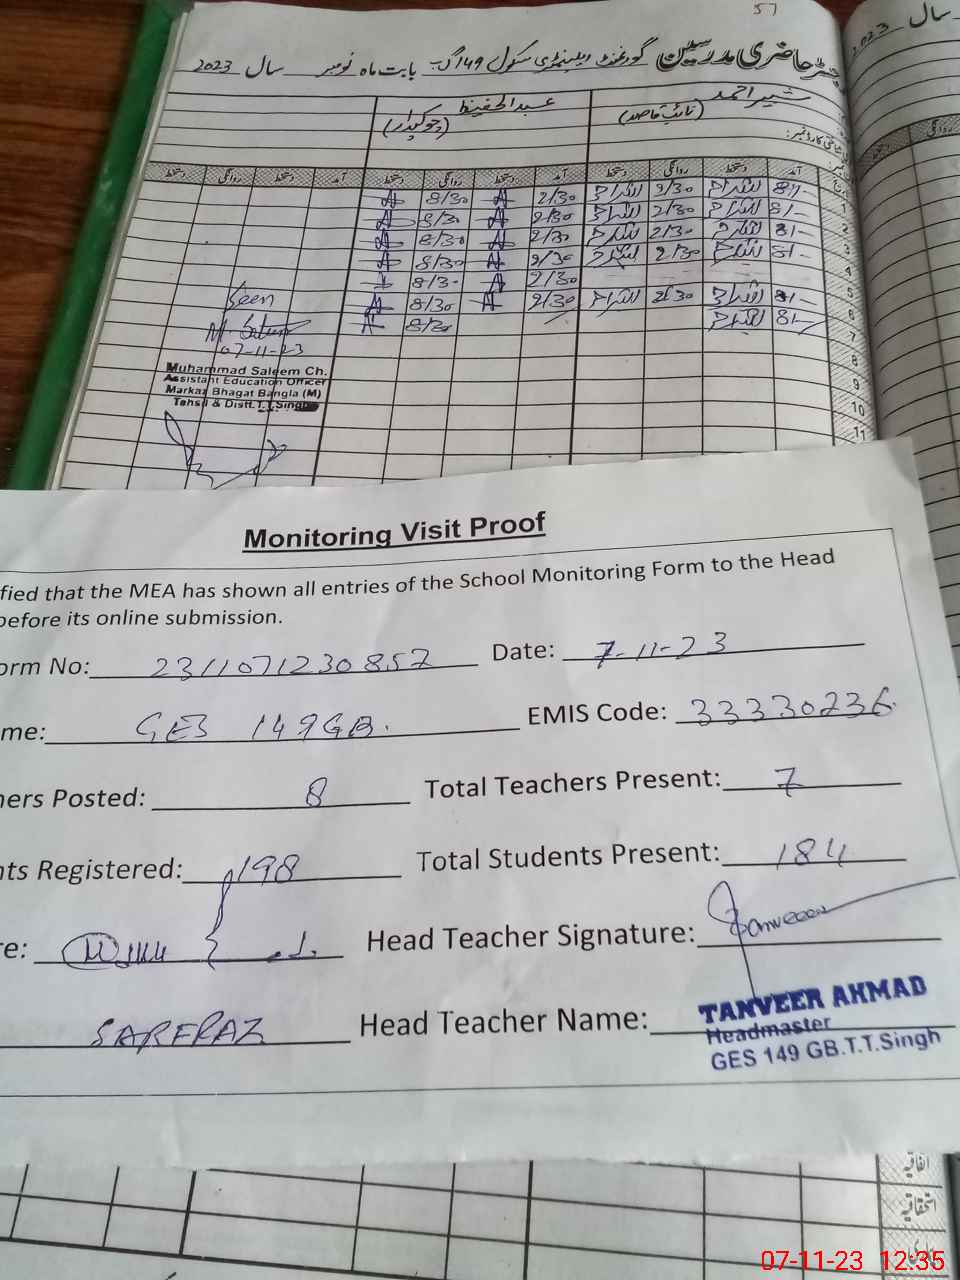 57
رجسٹر حاضری مدرسین گورنمنٹ ایلیمنٹری سکول 149 گ ب بابت ماہ نومبر سال 2023
سال 2023
شبیر احمد عبدالحفیظ
(نائب قاصد) (چوکیدار)
آمد دستخط روانگی دستخط آمد دستخط روانگی دستخط آمد دستخط روانگی دستخط
روانگی
8/- 2/30 2/30 8/30
1
8/- 2/30 2/30 8/30
2
8/- 2/30 2/30 8/30
3
8/- 2/30 2/30 8/30
4
2/30 8/30
5
8/- 2/30 2/30 8/30
6
8/- 8/30
7
8
9
10
11
Seen
M. Saleem
07-11-23
Muhammad Saleem Ch.
Assistant Education Officer
Markaz Bhagat Bangla (M)
Tehsil & Distt. T.T.Singh
Monitoring Visit Proof
fied that the MEA has shown all entries of the School Monitoring Form to the Head
before its online submission.
orm No: 2311071230857 Date: 7-11-23
me: GES 149GB. EMIS Code: 33330236
hers Posted: 8 Total Teachers Present: 7
nts Registered: 198 Total Students Present: 184
re: Head Teacher Signature: Tanveer
SARFRAZ Head Teacher Name: TANVEER AHMAD
Headmaster
GES 149 GB.T.T.Singh
اتفاقیہ
استحقاقیہ
07-11-23 12:35